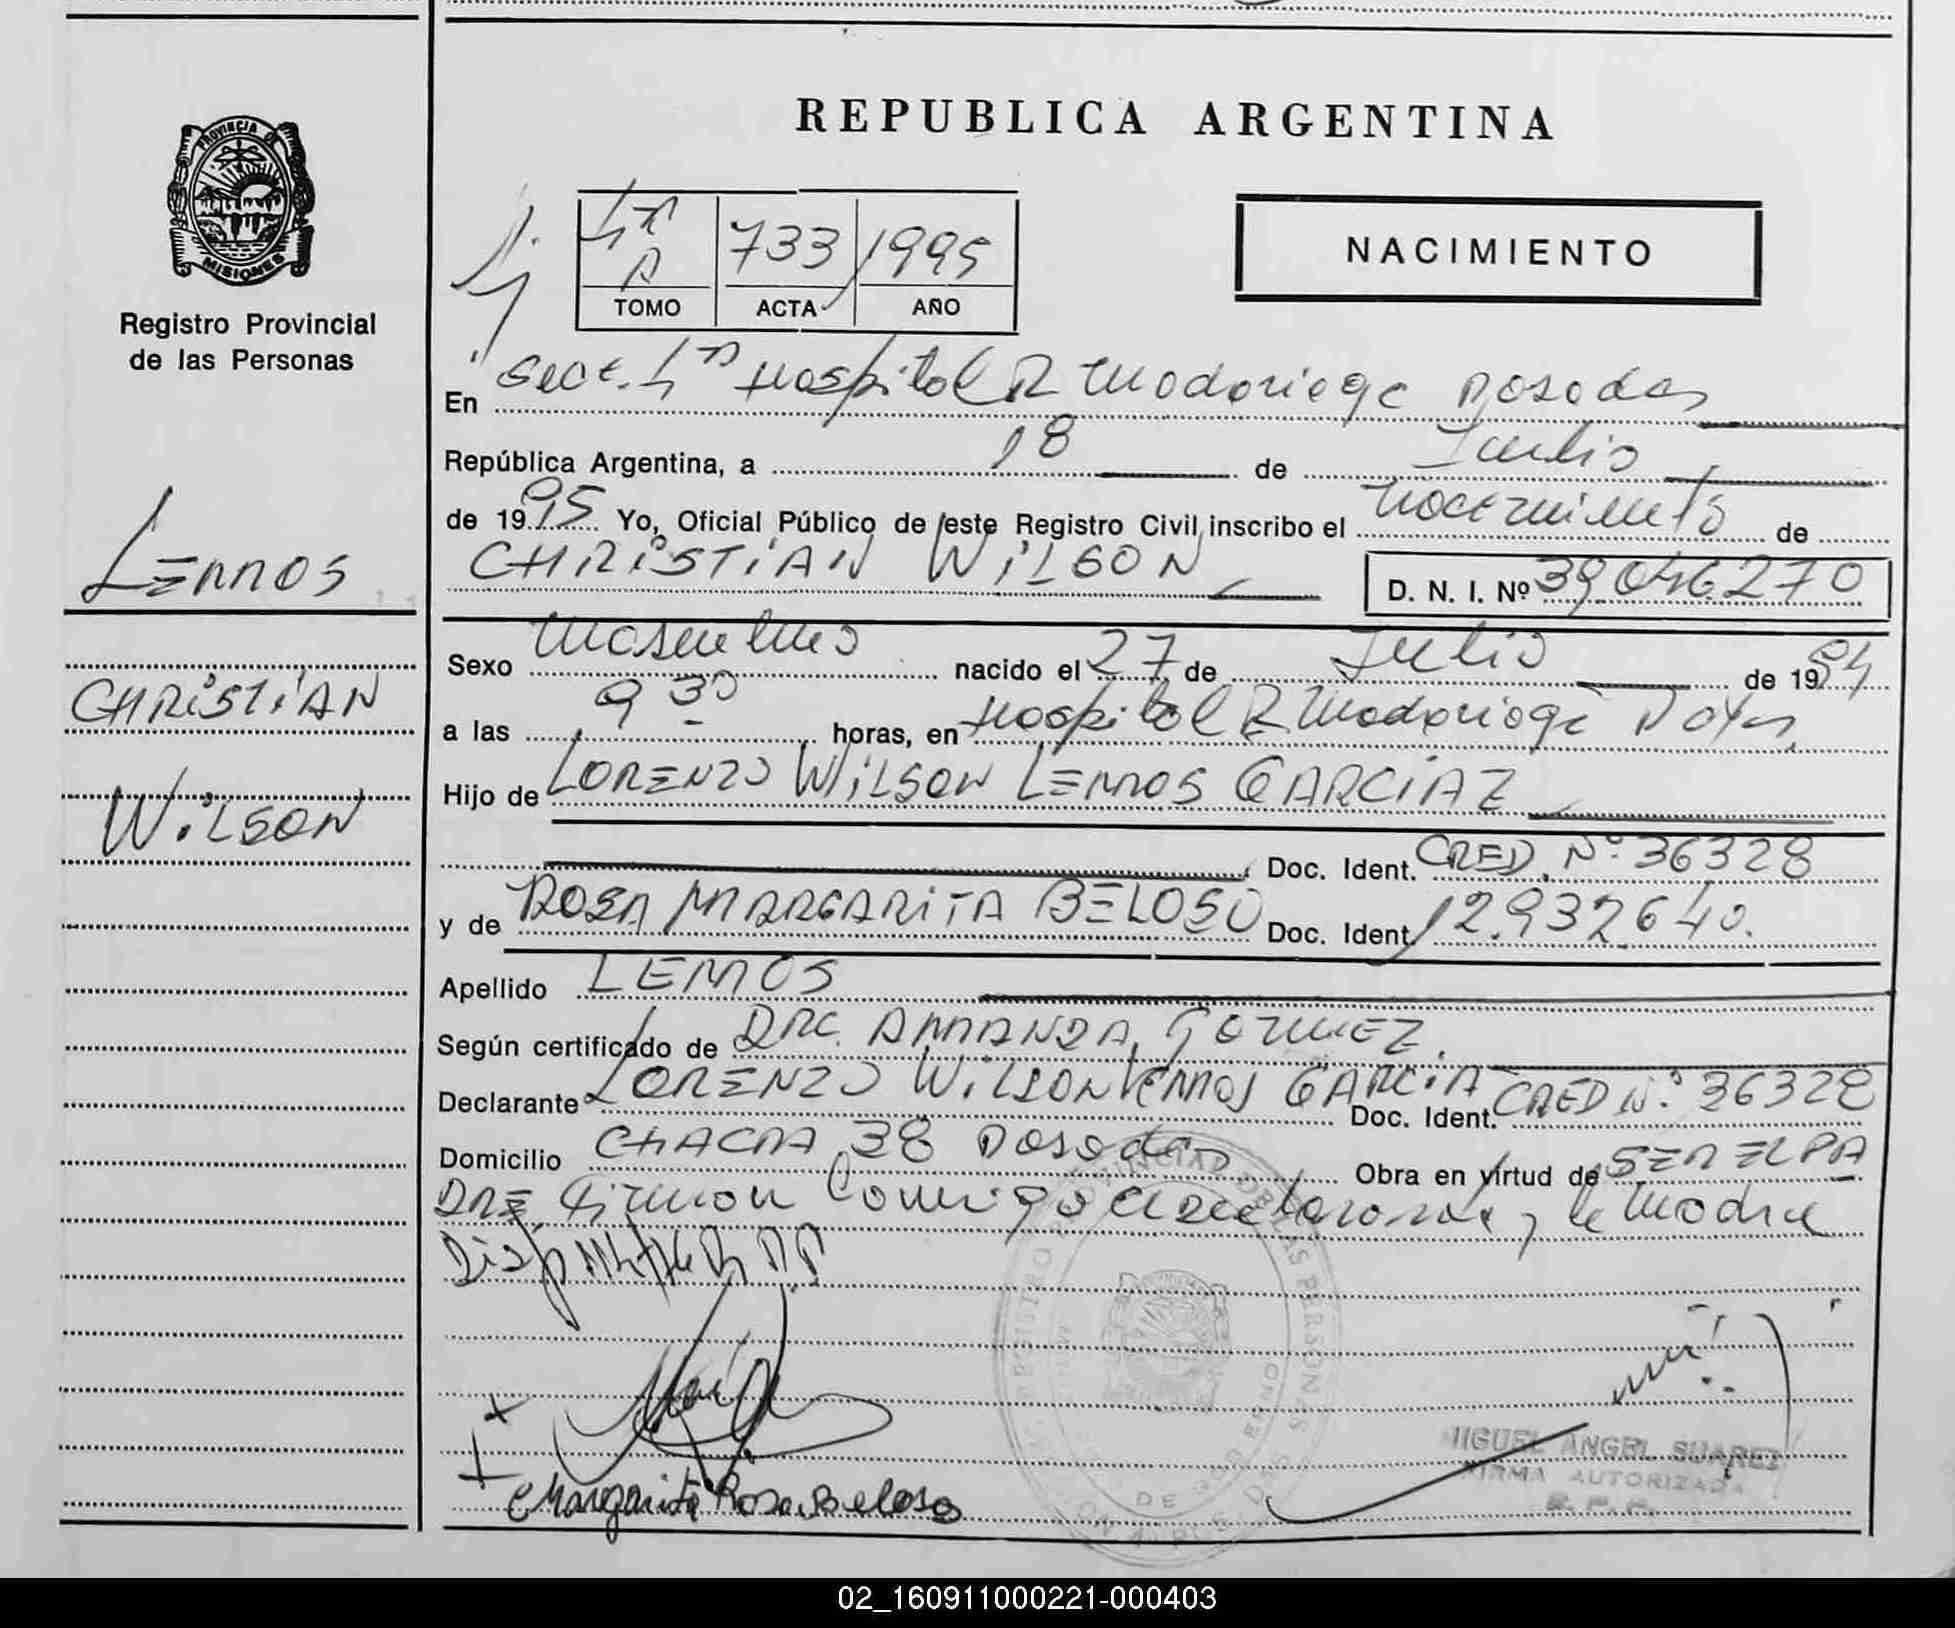 REPUBLICA ARGENTINA
PROVINCIA DE
MISIONES
Registro Provincial
de las Personas
733 1995
TOMO ACTA AÑO
NACIMIENTO
En Secc. Hospital R Madariaga Posadas
República Argentina, a 18 de Julio
de 1995 Yo, Oficial Público de este Registro Civil inscribo el nacimiento de
CHRISTIAN WILSON D. N. I. Nº 39.046.270
Lemos
CHRISTIAN
WILSON
Sexo masculino nacido el 27 de Julio de 1994
a las 9 30 horas, en Hospital R Madariaga
Hijo de LORENZO WILSON LEMOS GARCIAZ
Doc. Ident. CRED. Nº 36328
y de ROSA MARGARITA BELOSO Doc. Ident. 12.932.640.
Apellido LEMOS
Según certificado de DRA. AMANDA GOMEZ
Declarante LORENZO WILSON LEMOS GARCIA Doc. Ident. CRED Nº 36328
Domicilio CHACRA 38 Posadas Obra en virtud de SER EL PA
DRE. Firman Conmigo el declarante y la madre
Margarita Rosa Beloso
MIGUEL ANGEL SUAREZ
FIRMA AUTORIZADA
02_160911000221-000403